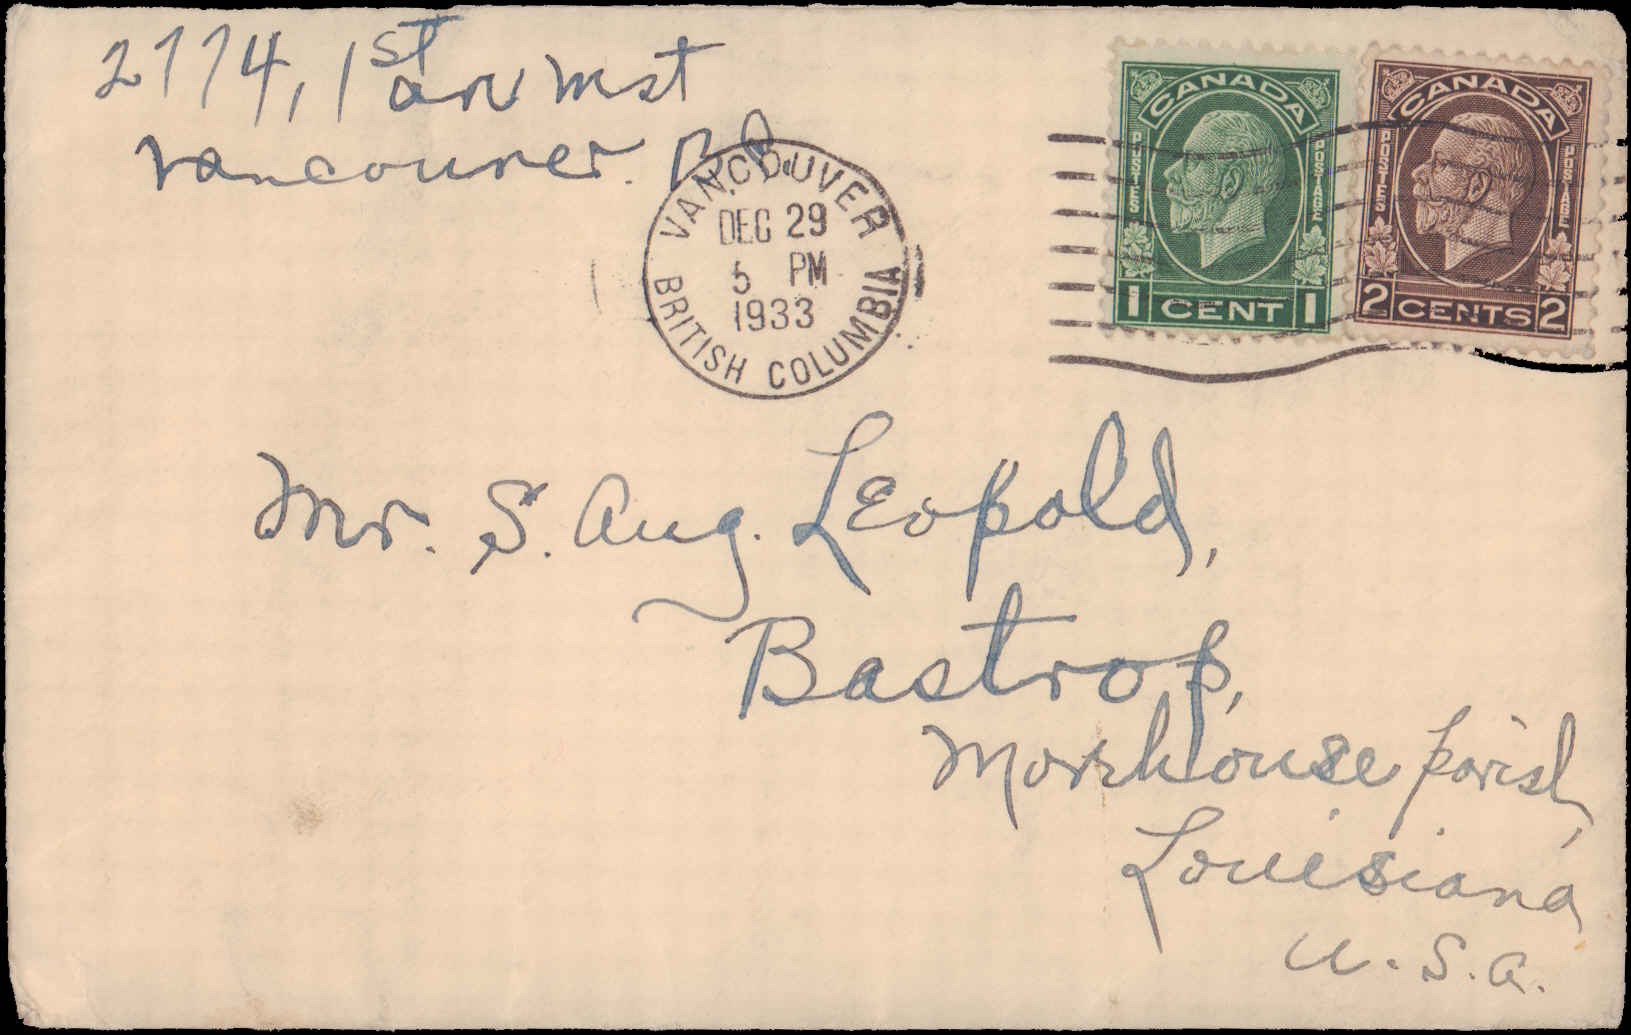 2774, 1st av west
Vancouver. B.C.
VANCOUVER
DEC 29
5 PM
1933
BRITISH COLUMBIA
CANADA
POSTES
POSTAGE
1 CENT 1
CANADA
POSTES
POSTAGE
2 CENTS 2
Mr. S. Aug. Leopold,
Bastrop,
Morehouse parish,
Louisiana
U.S.A.